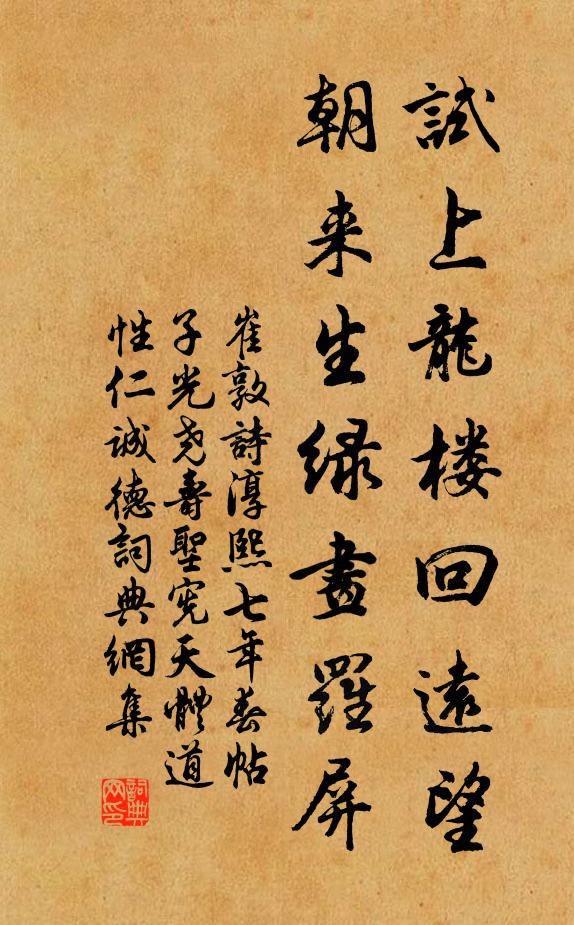 試上龍楼回遠望
朝来生緑畫羅屏
崔敦詩淳熙七年春帖
子光尧壽聖宪天體道
性仁誠德詞典網集
詞典网印